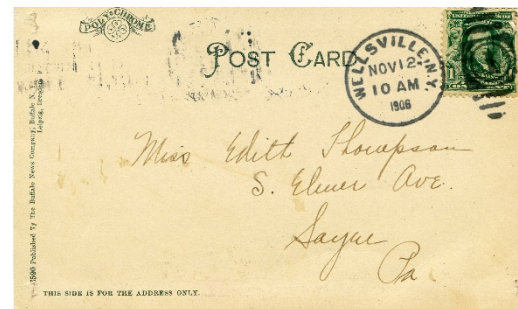 POLY-CHROME
POST CARD
WELLSVILLE, N.Y.
NOV 12
10 AM
1906
1
Miss Edith Thompson
S. Elmer Ave.
Sayre
Pa.
Published by The Buffalo News Company, Buffalo N. Y.
Leipzig, Dresden
THIS SIDE IS FOR THE ADDRESS ONLY.